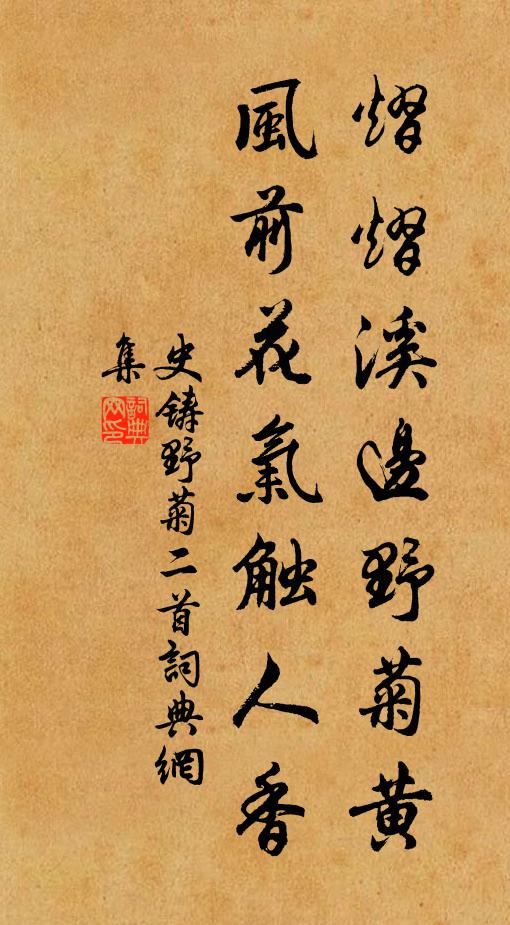 熠熠溪邊野菊黄
風前花氣触人香
史鑄野菊二首詞典網
集
詞典网印